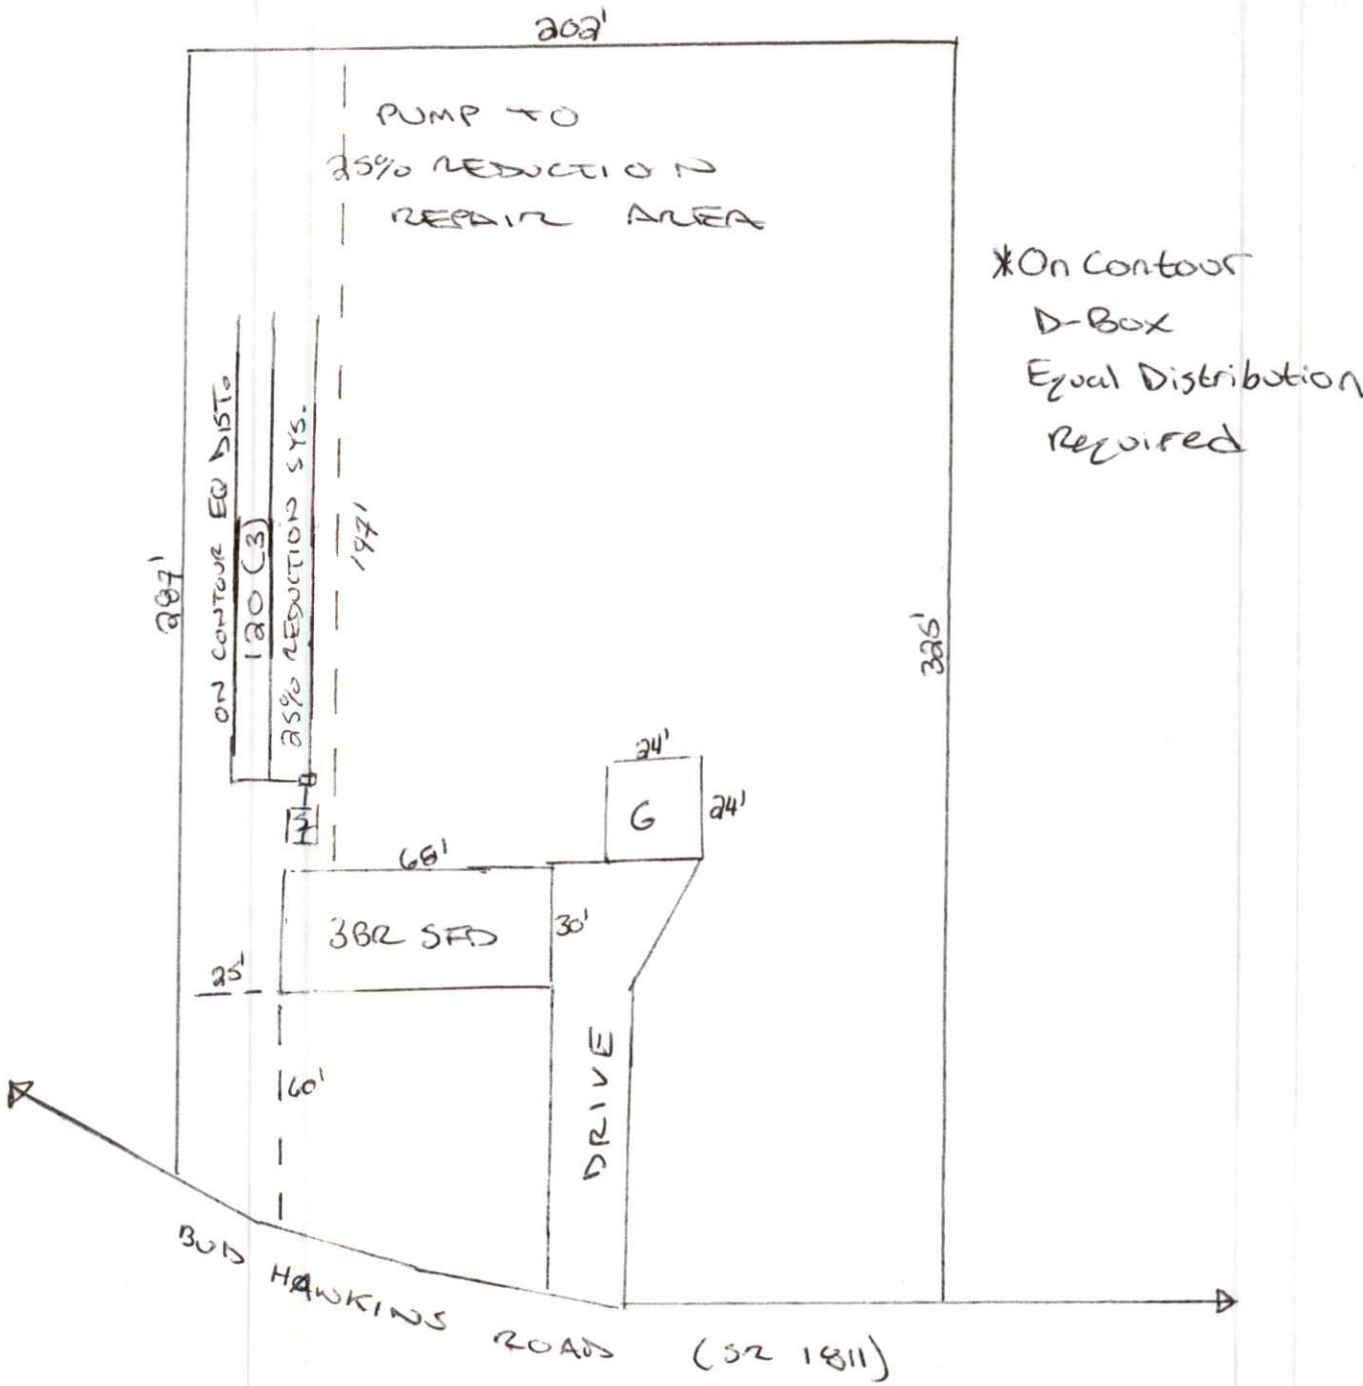 202'
PUMP TO
25% REDUCTION
REPAIR AREA
*On Contour
D-Box
Equal Distribution
Required
ON CONTOUR EQ DIST.
120 (3)
25% REDUCTION SYS.
197'
287'
325'
24'
24'
G
68'
30'
3BR SFD
25'
60'
DRIVE
BUD HAWKINS ROAD (SR 1811)